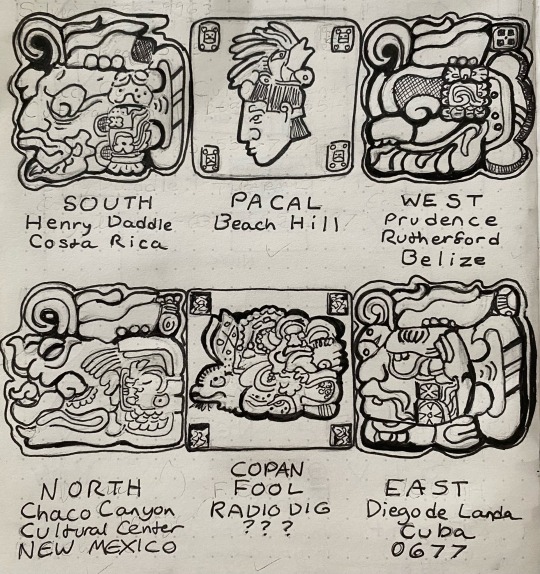 SOUTH
Henry Daddle
Costa Rica
PACAL
Beach Hill
WEST
Prudence
Rutherford
Belize
NORTH
Chaco Canyon
Cultural Center
NEW MEXICO
COPAN
FOOL
RADIO DIG
? ? ?
EAST
Diego de Landa
Cuba
0677